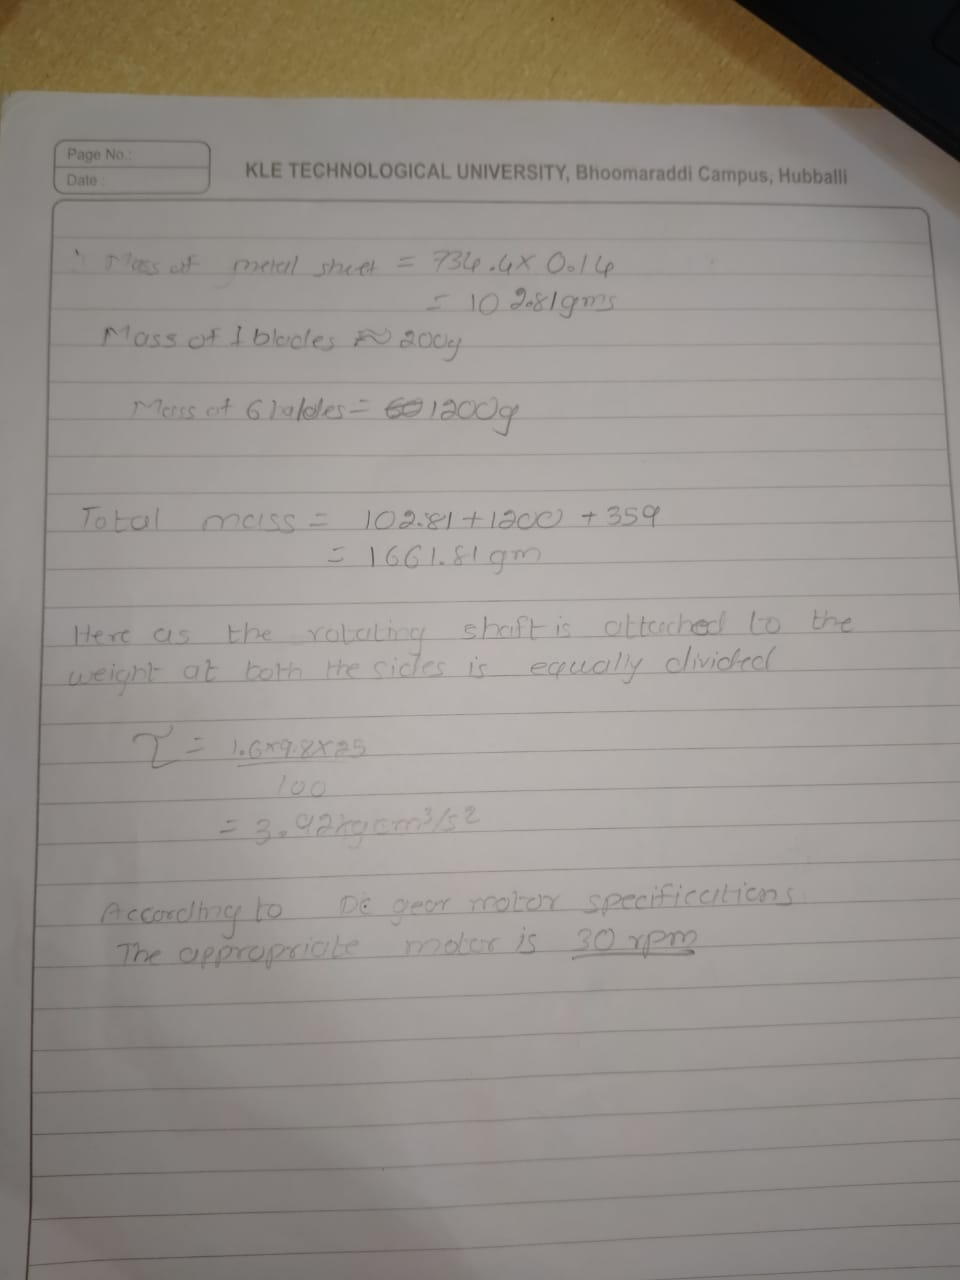 Page No.:
Date :
KLE TECHNOLOGICAL UNIVERSITY, Bhoomaraddi Campus, Hubballi
Mass of metal sheet = 734.4x 0.14
= 102.81gms
Mass of 1 blades ≈ 200g
Mass of 6 blades = 1200g
Total mass = 102.81+1200 + 359
= 1661.81 gm
Here as the rotating shaft is attached to the
weight at both the sides is equally divided
τ = 1.6x9.8x25
100
= 3.92kgcm³/s²
According to DC gear motor specifications
The appropriate motor is 30 rpm